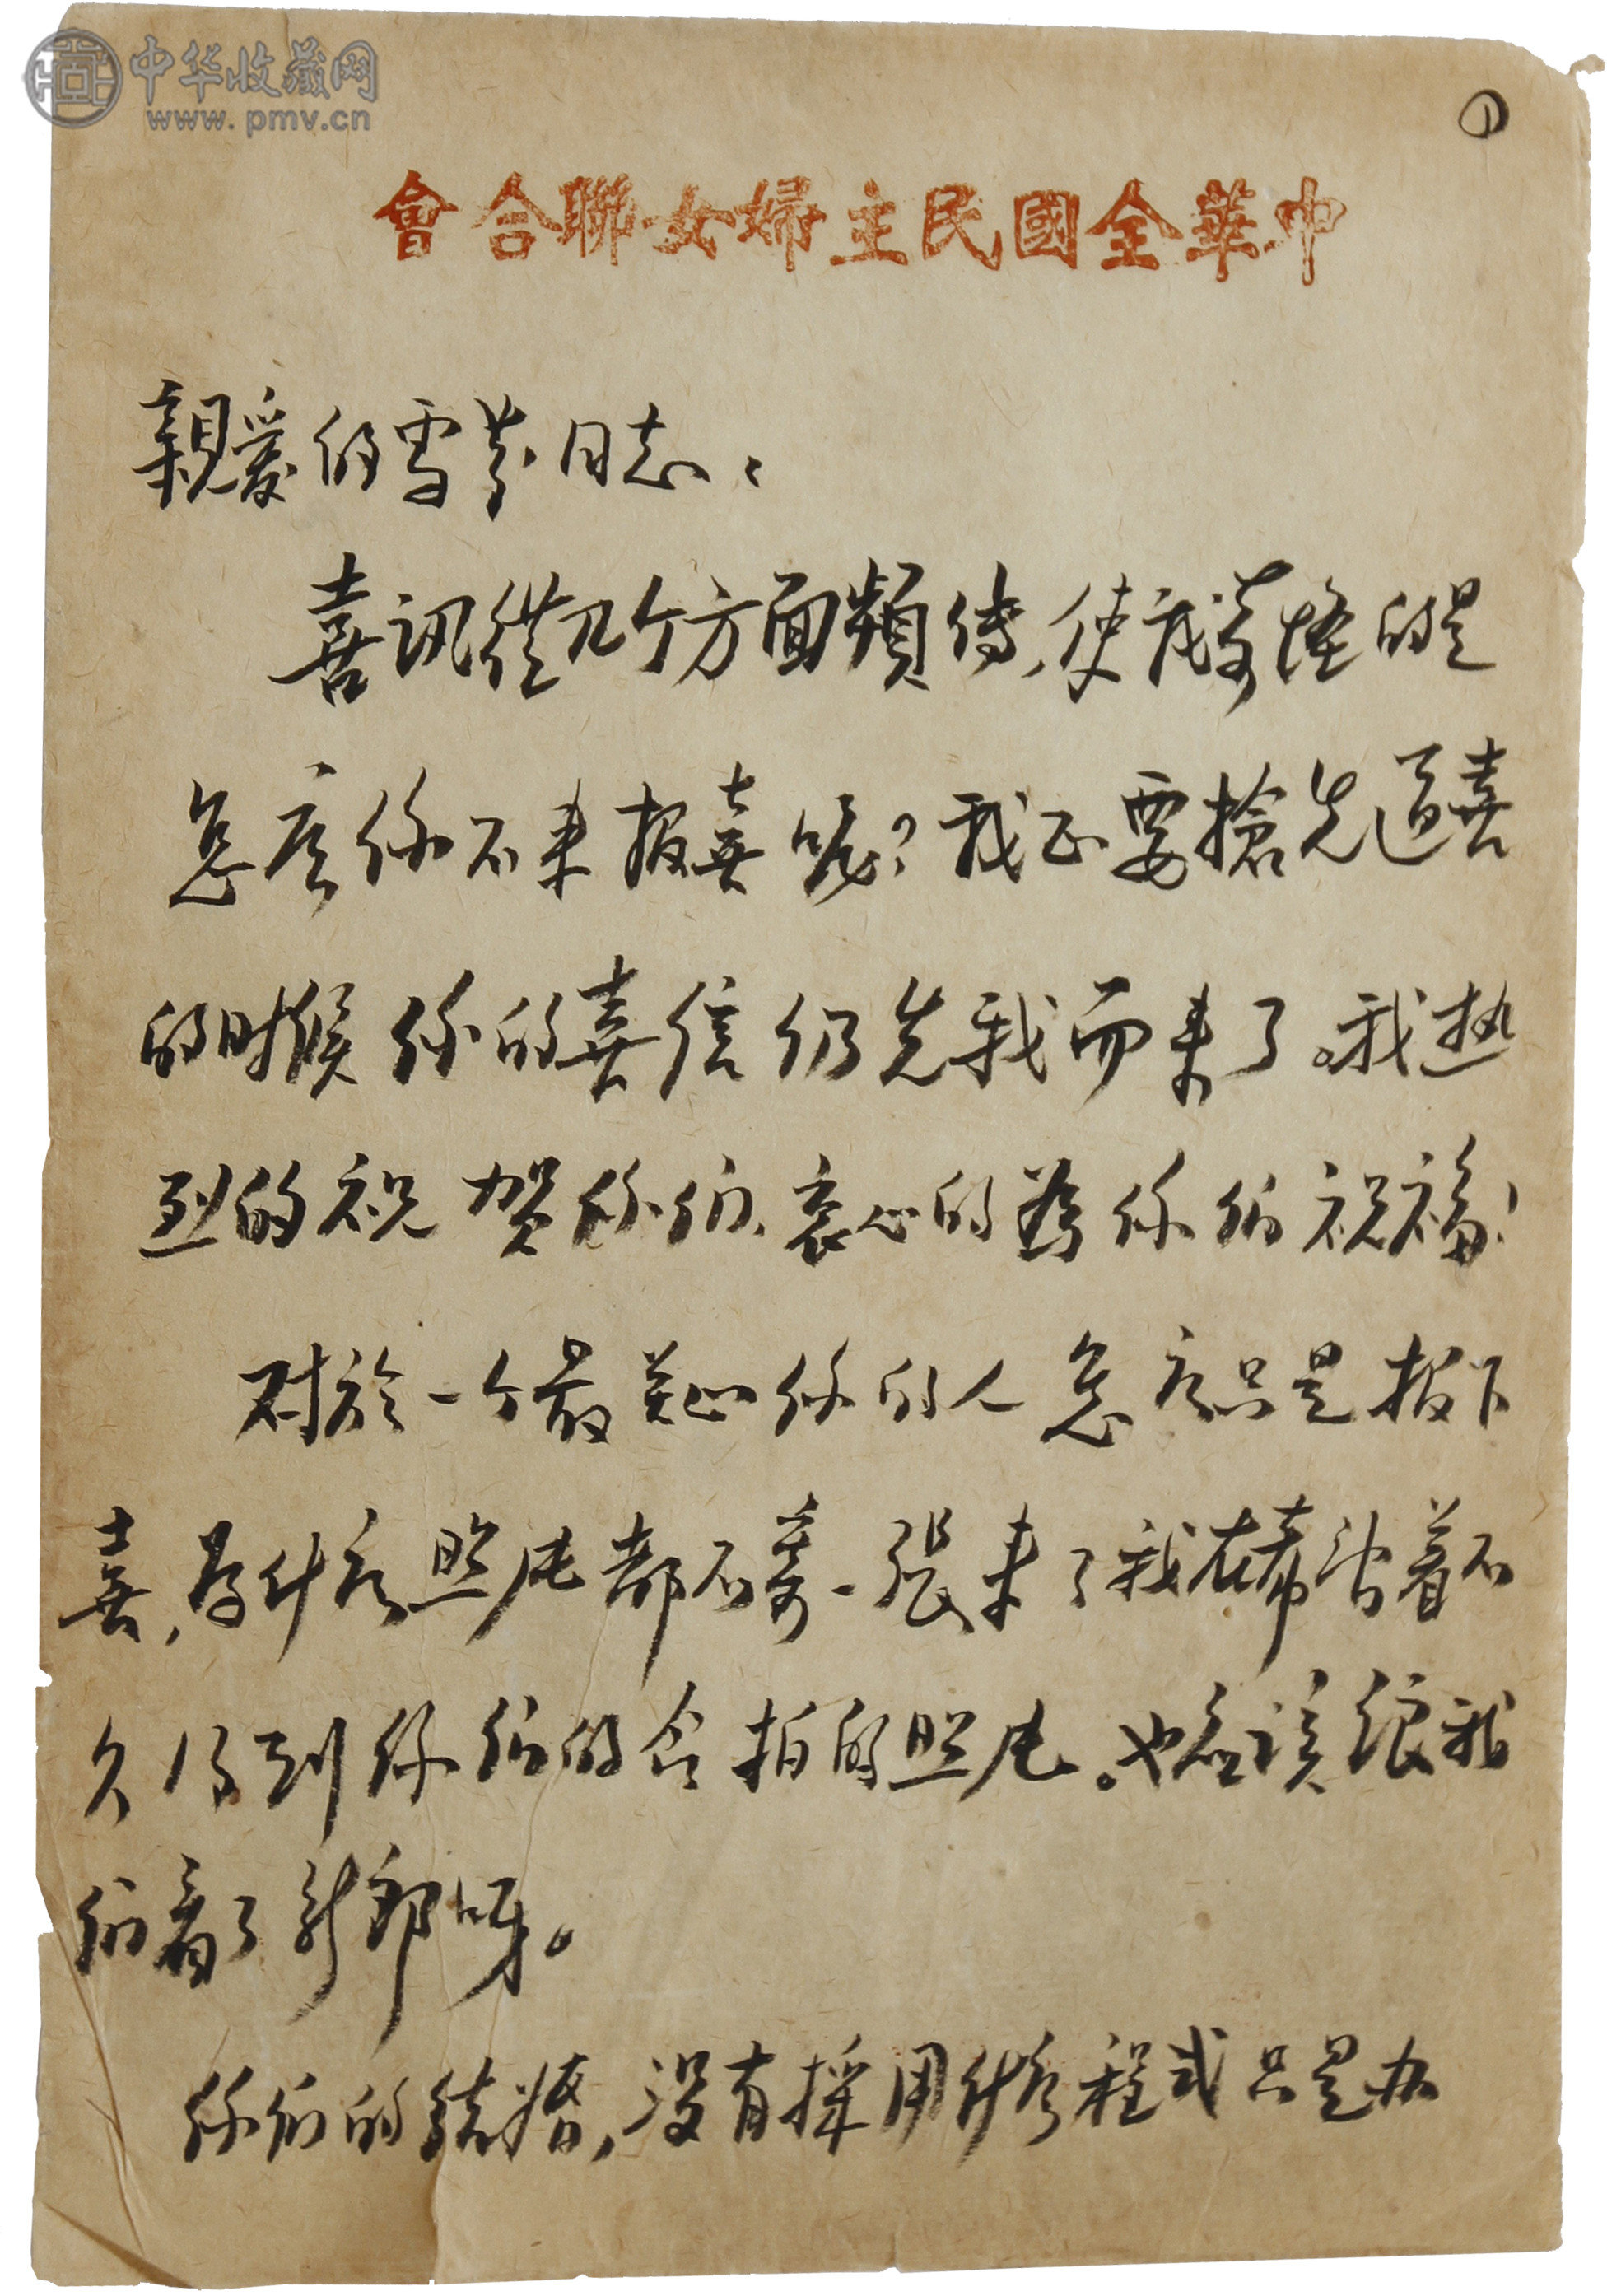 中华收藏网
www.pmv.cn
①
中華全國民主婦女聯合會
親爱的雪芬同志：
喜訊從几个方面頻傳、使我奇怪的是
怎么你不来报喜呢？我正要搶先道喜
的时候你的喜信仍先我而来了。我热
烈的祝贺你们、衷心的為你们祝福！
对於一个最关心你的人怎么只是报下
喜，為什么照片都不寄一張来？我在希望着不
久得到你们的合拍的照片。也应該給我
们看了新郎呀。
你们的結婚，没有採用什么程式只是办